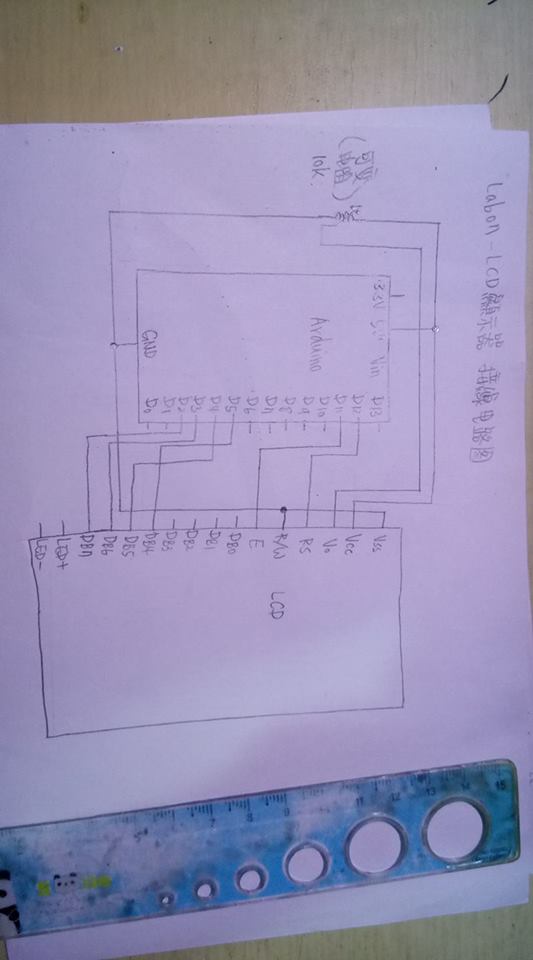 Labon-LCD顯示器 接線电路图
(可变
电阻)
10k:
3.3V 5V Vin
D13
D12
D11
D10
D9
D8
D7
D6
D5
D4
D3
D2
D1
D0
Arduino
GND
Vss
Vcc
Vo
RS
R/W
E
DB0
DB1
DB2
DB3
DB4
DB5
DB6
DB7
LED+
LED-
LCD